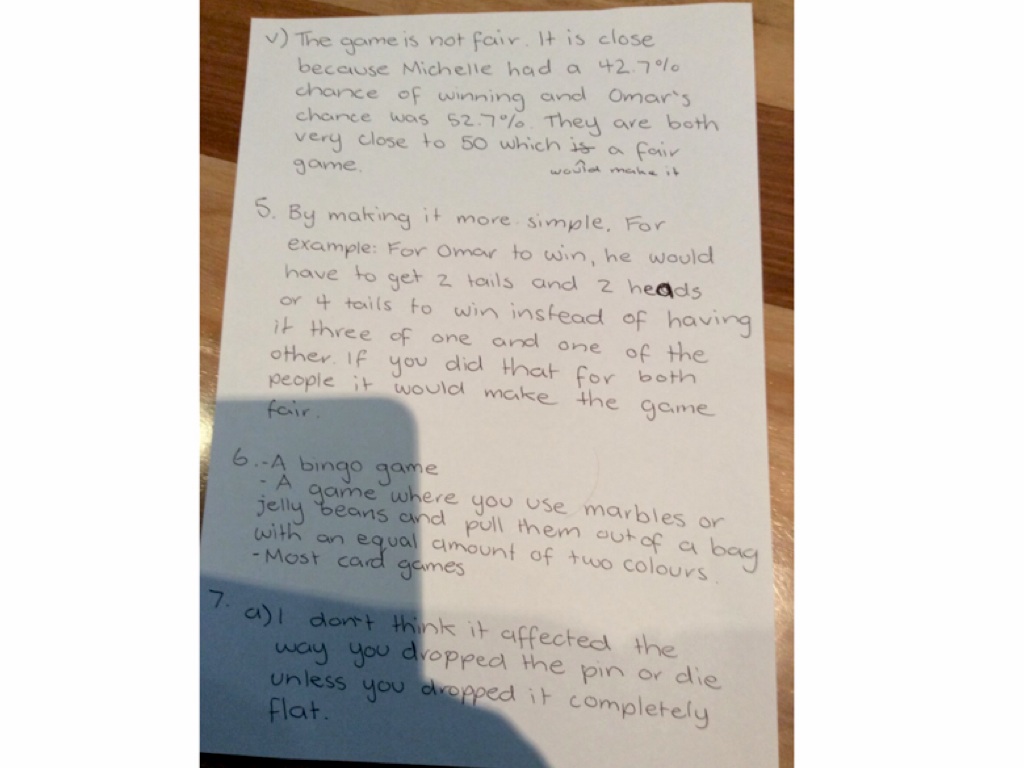 v) The game is not fair. It is close
because Michelle had a 42.7%
chance of winning and Omar's
chance was 52.7%. They are both
very close to 50 which is a fair
would make it
game.
5. By making it more simple. For
example: For Omar to win, he would
have to get 2 tails and 2 heads
or 4 tails to win instead of having
it three of one and one of the
other. If you did that for both
people it would make the game
fair.
6. -A bingo game
- A game where you use marbles or
jelly beans and pull them out of a bag
with an equal amount of two colours.
-Most card games
7. a) I don't think it affected the
way you dropped the pin or die
unless you dropped it completely
flat.